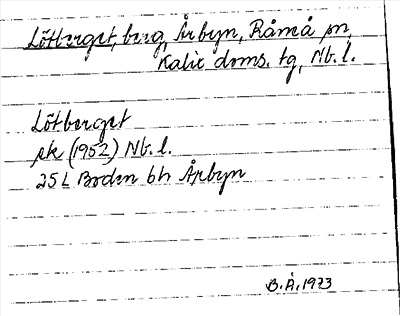 Lötberget, berg, Årbyn, Råneå sn,
Kalix doms. tg, Nb. l.
Lötberget
ek (1952) Nb. l.
25 L Boden bh Årbyn
B. Å. 1973